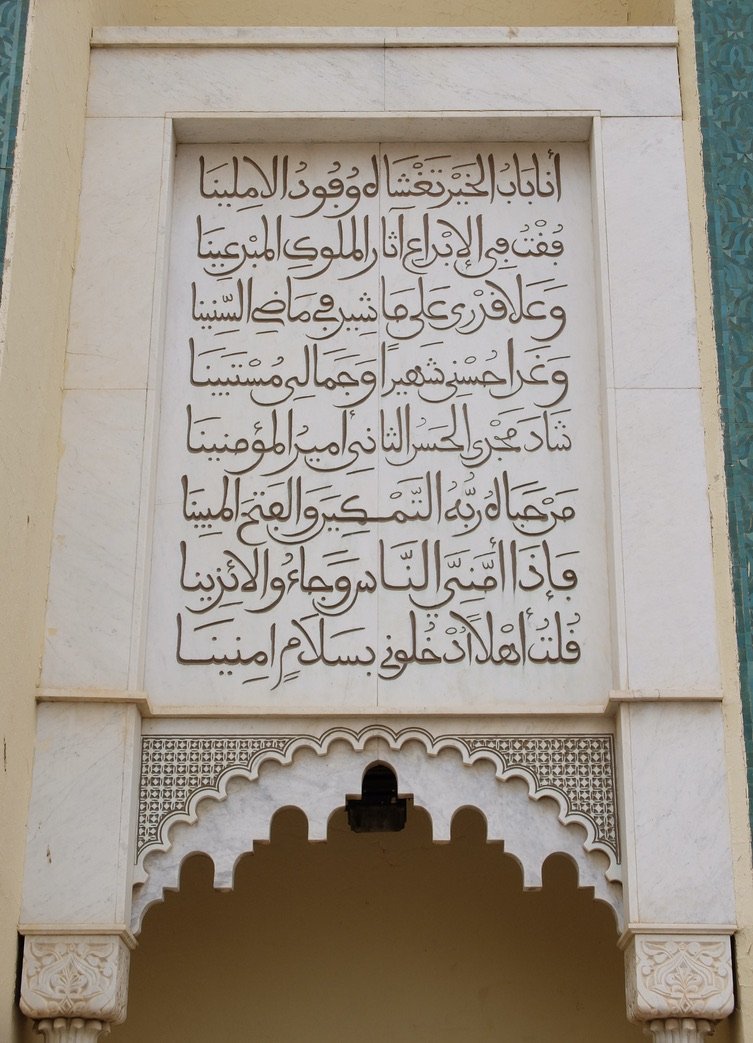 أنا بَابُ الخَيْر تَغْشَاهُ وُفُودُ الامِلِينَا
فُقْتُ فِي الإبْدَاعِ اثَار المُلوكِ المُبْدِعِينَا
وَعَلا قَدْرِي عَلَى مَا شِيدَ فِي مَاضِي السِّنِينَا
وَغَدَا حُسْنِي شَهِيرًا وَجَمَالِي مُسْتَبِينَا
شَادَ مَجْدِي الحَسَنُ الثانِي أمِيرُ المُؤمِنِينَا
مَنْ حَبَاهُ رَبُّهُ التَّمْكِينَ وَالفَتْحَ المُبِينَا
فَإذَا أمَّنِيَ النَّاس وَجَاءُوا لائِذِينا
قُلتُ أهْلاً ادْخُلونِي بسَلامٍ امِنِينَا